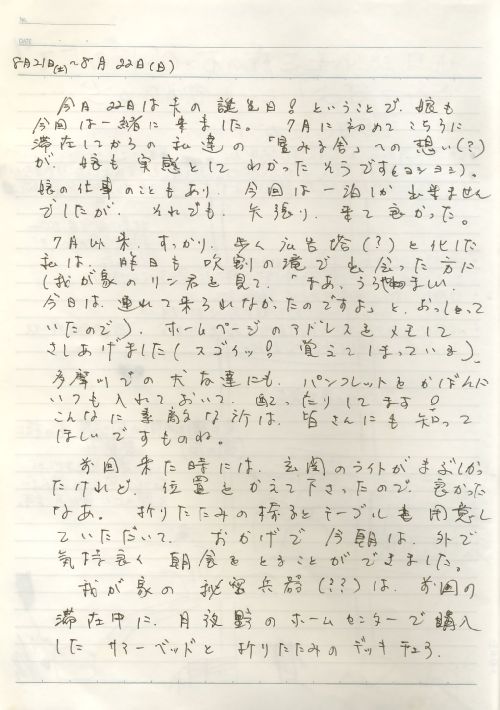 No.
DATE
8月21日(土)~8月22日(日)
今月22日は夫の誕生日!ということで、娘も
今回は一緒に来ました。7月に初めてこちらに
滞在してからの私達の「星みる舎」への想い(?)
が、娘も実感としてわかったそうです(ヨシヨシ)。
娘の仕事のこともあり、今回は一泊しか出来ません
でしたが、それでも、矢張り、来て良かった。
7月以来、すっかり、歩く広告塔(?)と化した
私は、昨日も吹割の滝で出会った方に
(我が家のリン君を見て、「まあ、うらやましい、
今日は、連れて来られなかったのですよ」と、おっしゃって
いたので)、ホームページのアドレスをメモして
さしあげました(スゴイッ!覚えてしまっている)。
多摩川での犬友達にも、パンフレットをかばんに
いつも入れておいて、配ったりしてます!
こんなに素敵な所は、皆さんにも知って
ほしいですものね。
前回来た時には、玄関のライトがまぶしかっ
たけれど、位置をかえて下さったので、良かった
なあ。折りたたみの椅子とテーブルも用意し
ていただいて、おかげで今朝は、外で
気持良く朝食をとることができました。
我が家の秘密兵器(??)は、前回の
滞在中に、月夜野のホームセンターで購入
したサマーベッドと折りたたみのデッキチェア。